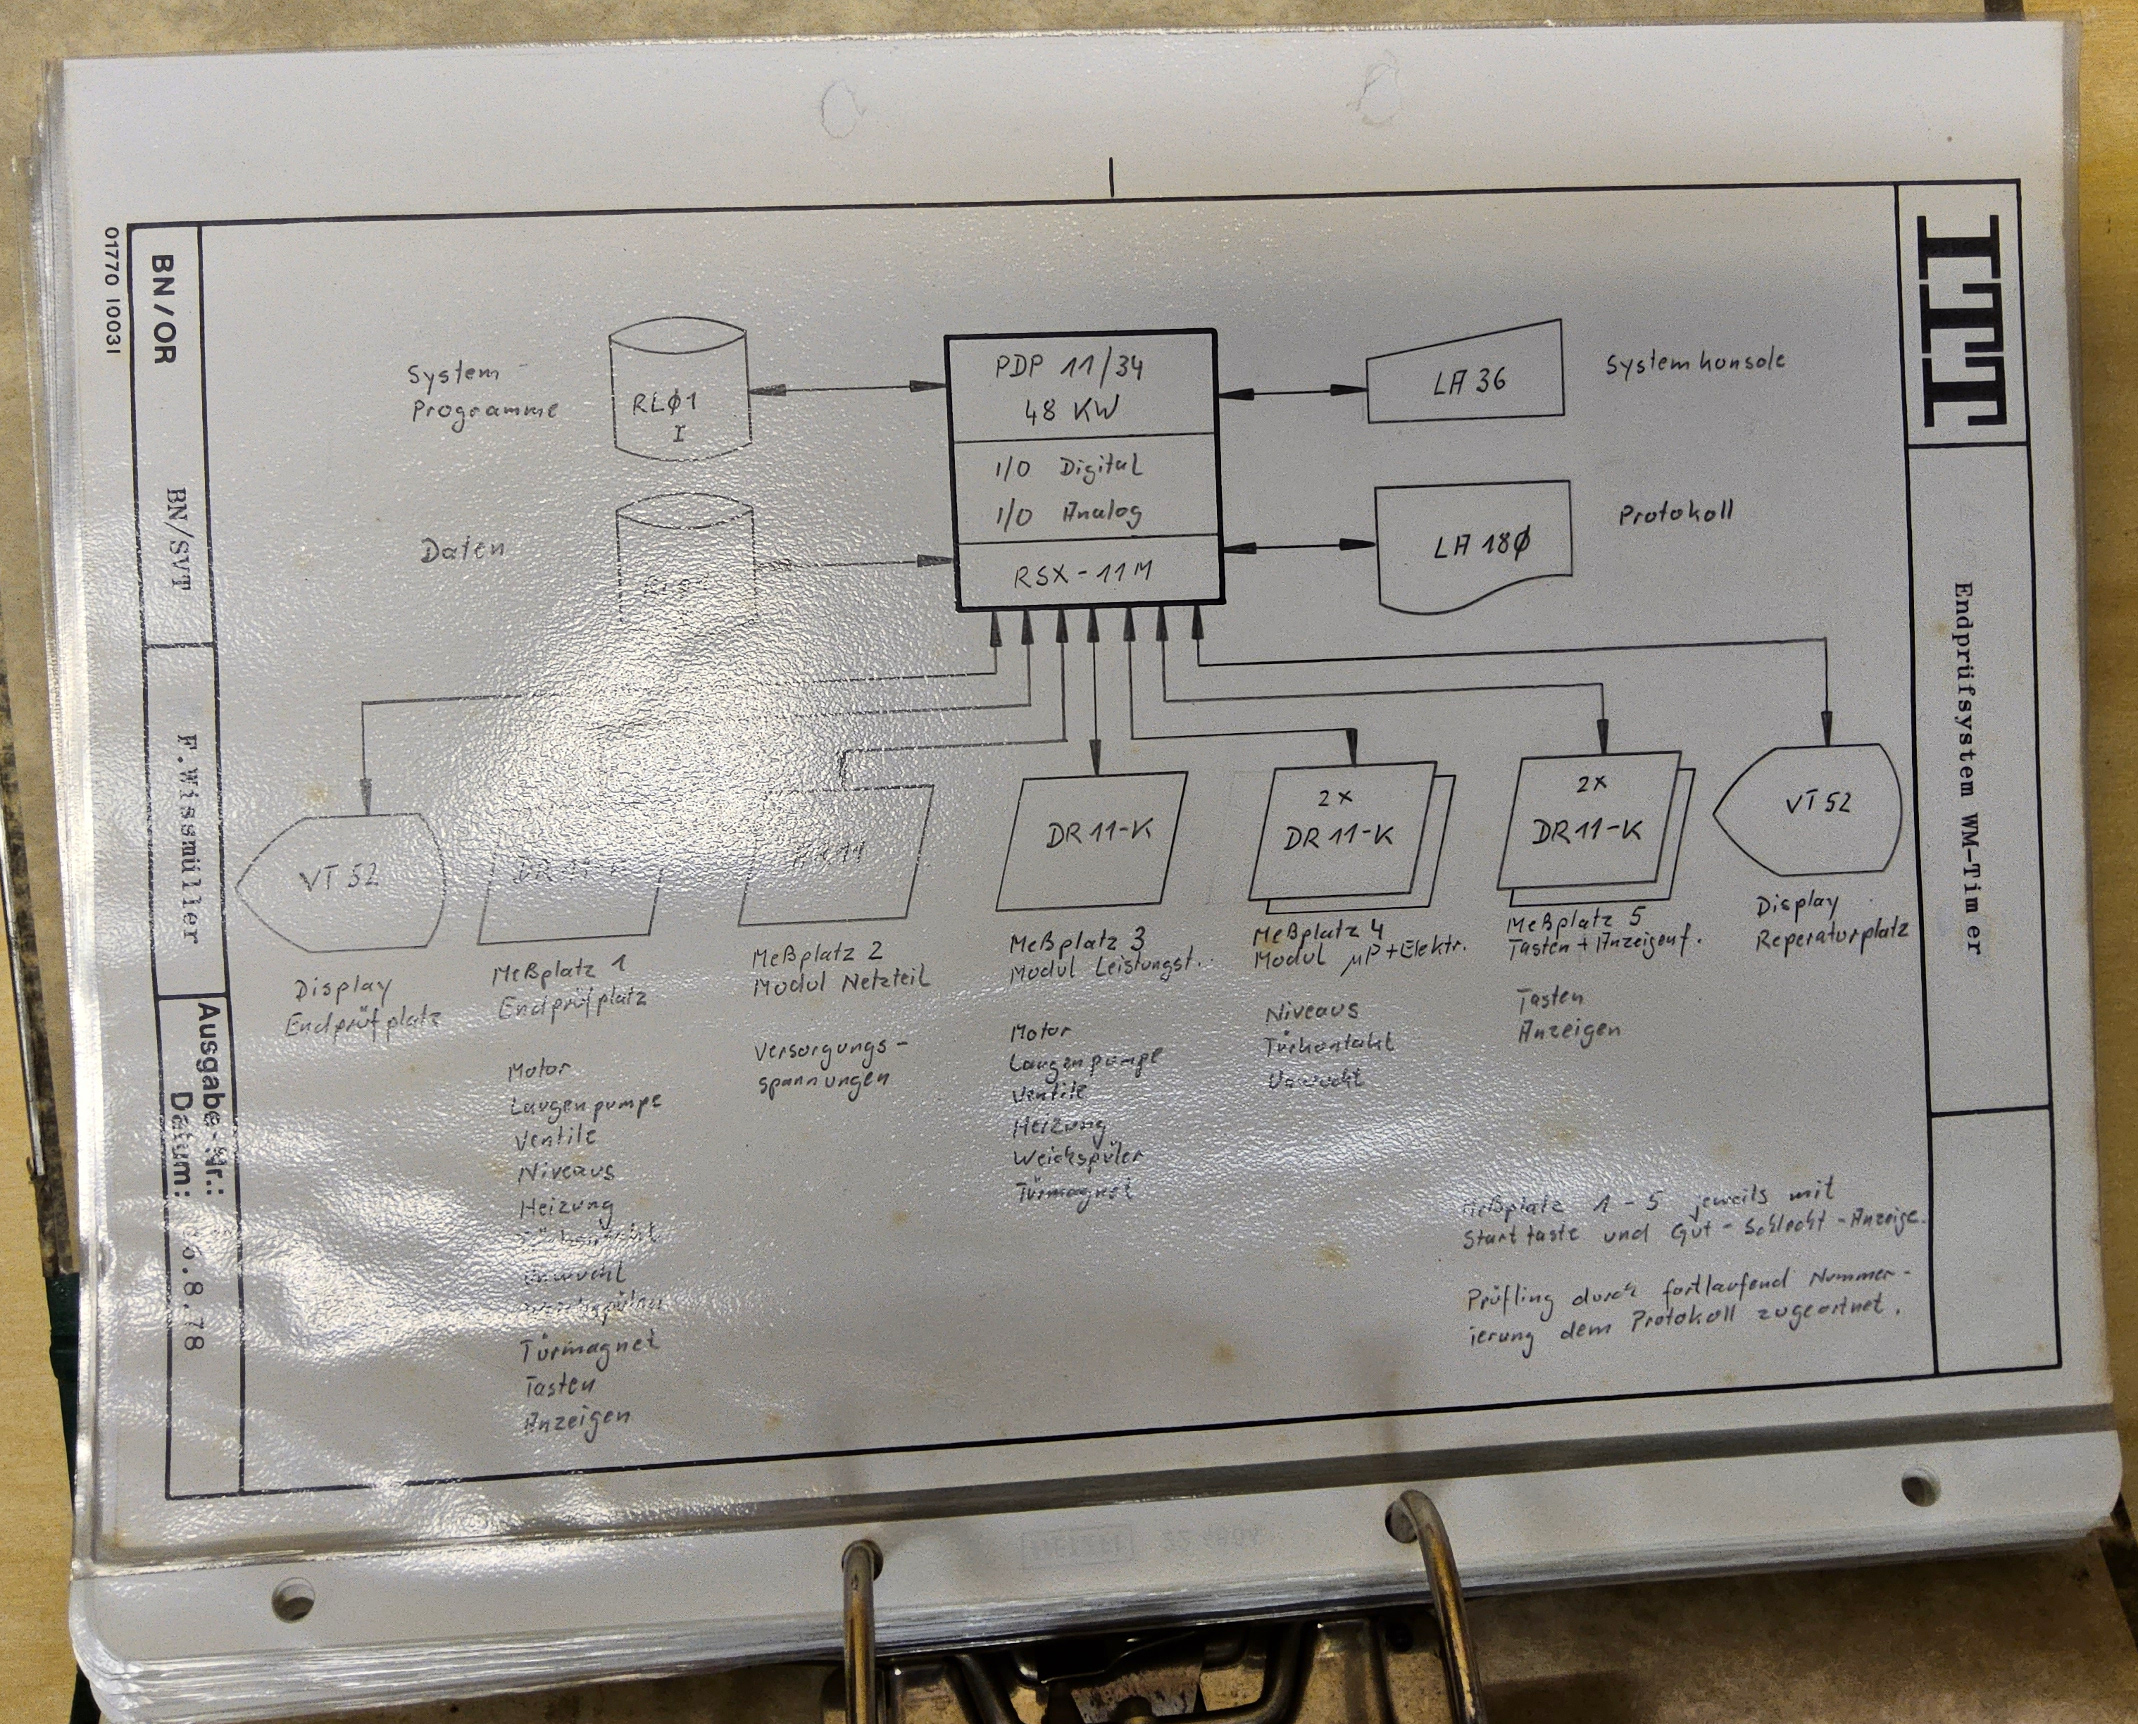 ITT
Endprüfsystem WM-Timer
01770 10031
BN/OR
BN/SVT
F.Wissmüller
Ausgabe-Nr.:
Datum: 6.8.78
System
Programme
RLØ1
I
PDP 11/34
48 KW
I/O Digital
I/O Analog
RSX-11M
LA 36
Systemkonsole
Daten
LA 18Ø
Protokoll
VT 52
Display
Endprüfplatz
Meßplatz 1
Endprüfplatz
Motor
Laugenpumpe
Ventile
Niveaus
Heizung
Unwucht
Türmagnet
Tasten
Anzeigen
Meßplatz 2
Modul Netzteil
Versorgungs-
spannungen
DR 11-K
Meßplatz 3
Modul Leistungst.
Motor
Laugenpumpe
Ventile
Heizung
Weichspüler
Türmagnet
2x
DR 11-K
Meßplatz 4
Modul µP+Elektr.
Niveaus
Türkontakt
Unwucht
2x
DR 11-K
Meßplatz 5
Tasten + Anzeigenf.
Tasten
Anzeigen
VT 52
Display
Reperaturplatz
Meßplatz 1 - 5 jeweils mit
Starttaste und Gut-Schlecht-Anzeige.
Prüfling durch fortlaufend Nummer-
ierung dem Protokoll zugeortnet.